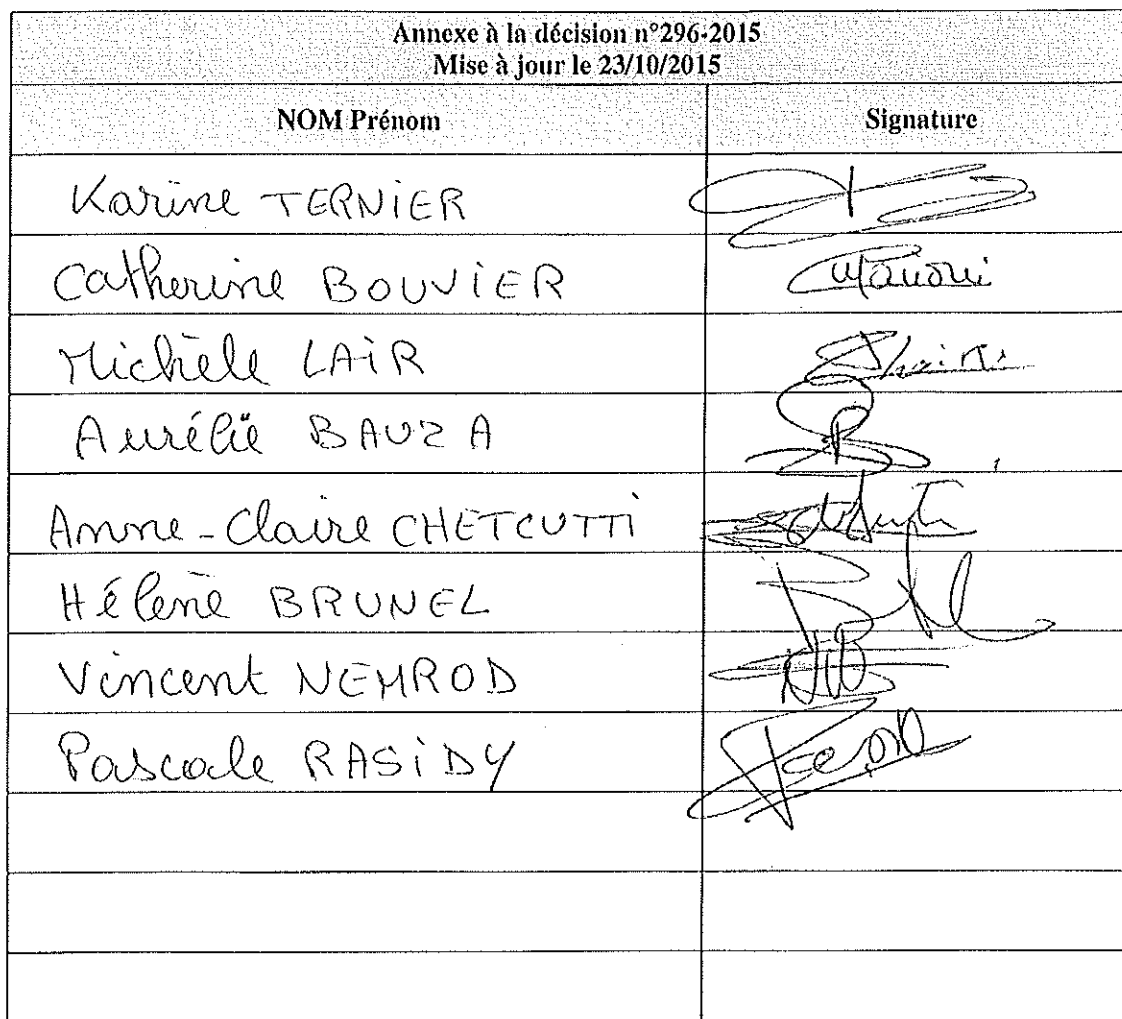 Annexe à la décision n°296-2015
Mise à jour le 23/10/2015
NOM Prénom Signature
Karine TERNIER
Catherine BOUVIER
Michèle LAIR
Aurélie BAUZA
Anne-Claire CHETCUTTI
Hélène BRUNEL
Vincent NEMROD
Pascale RASIDY